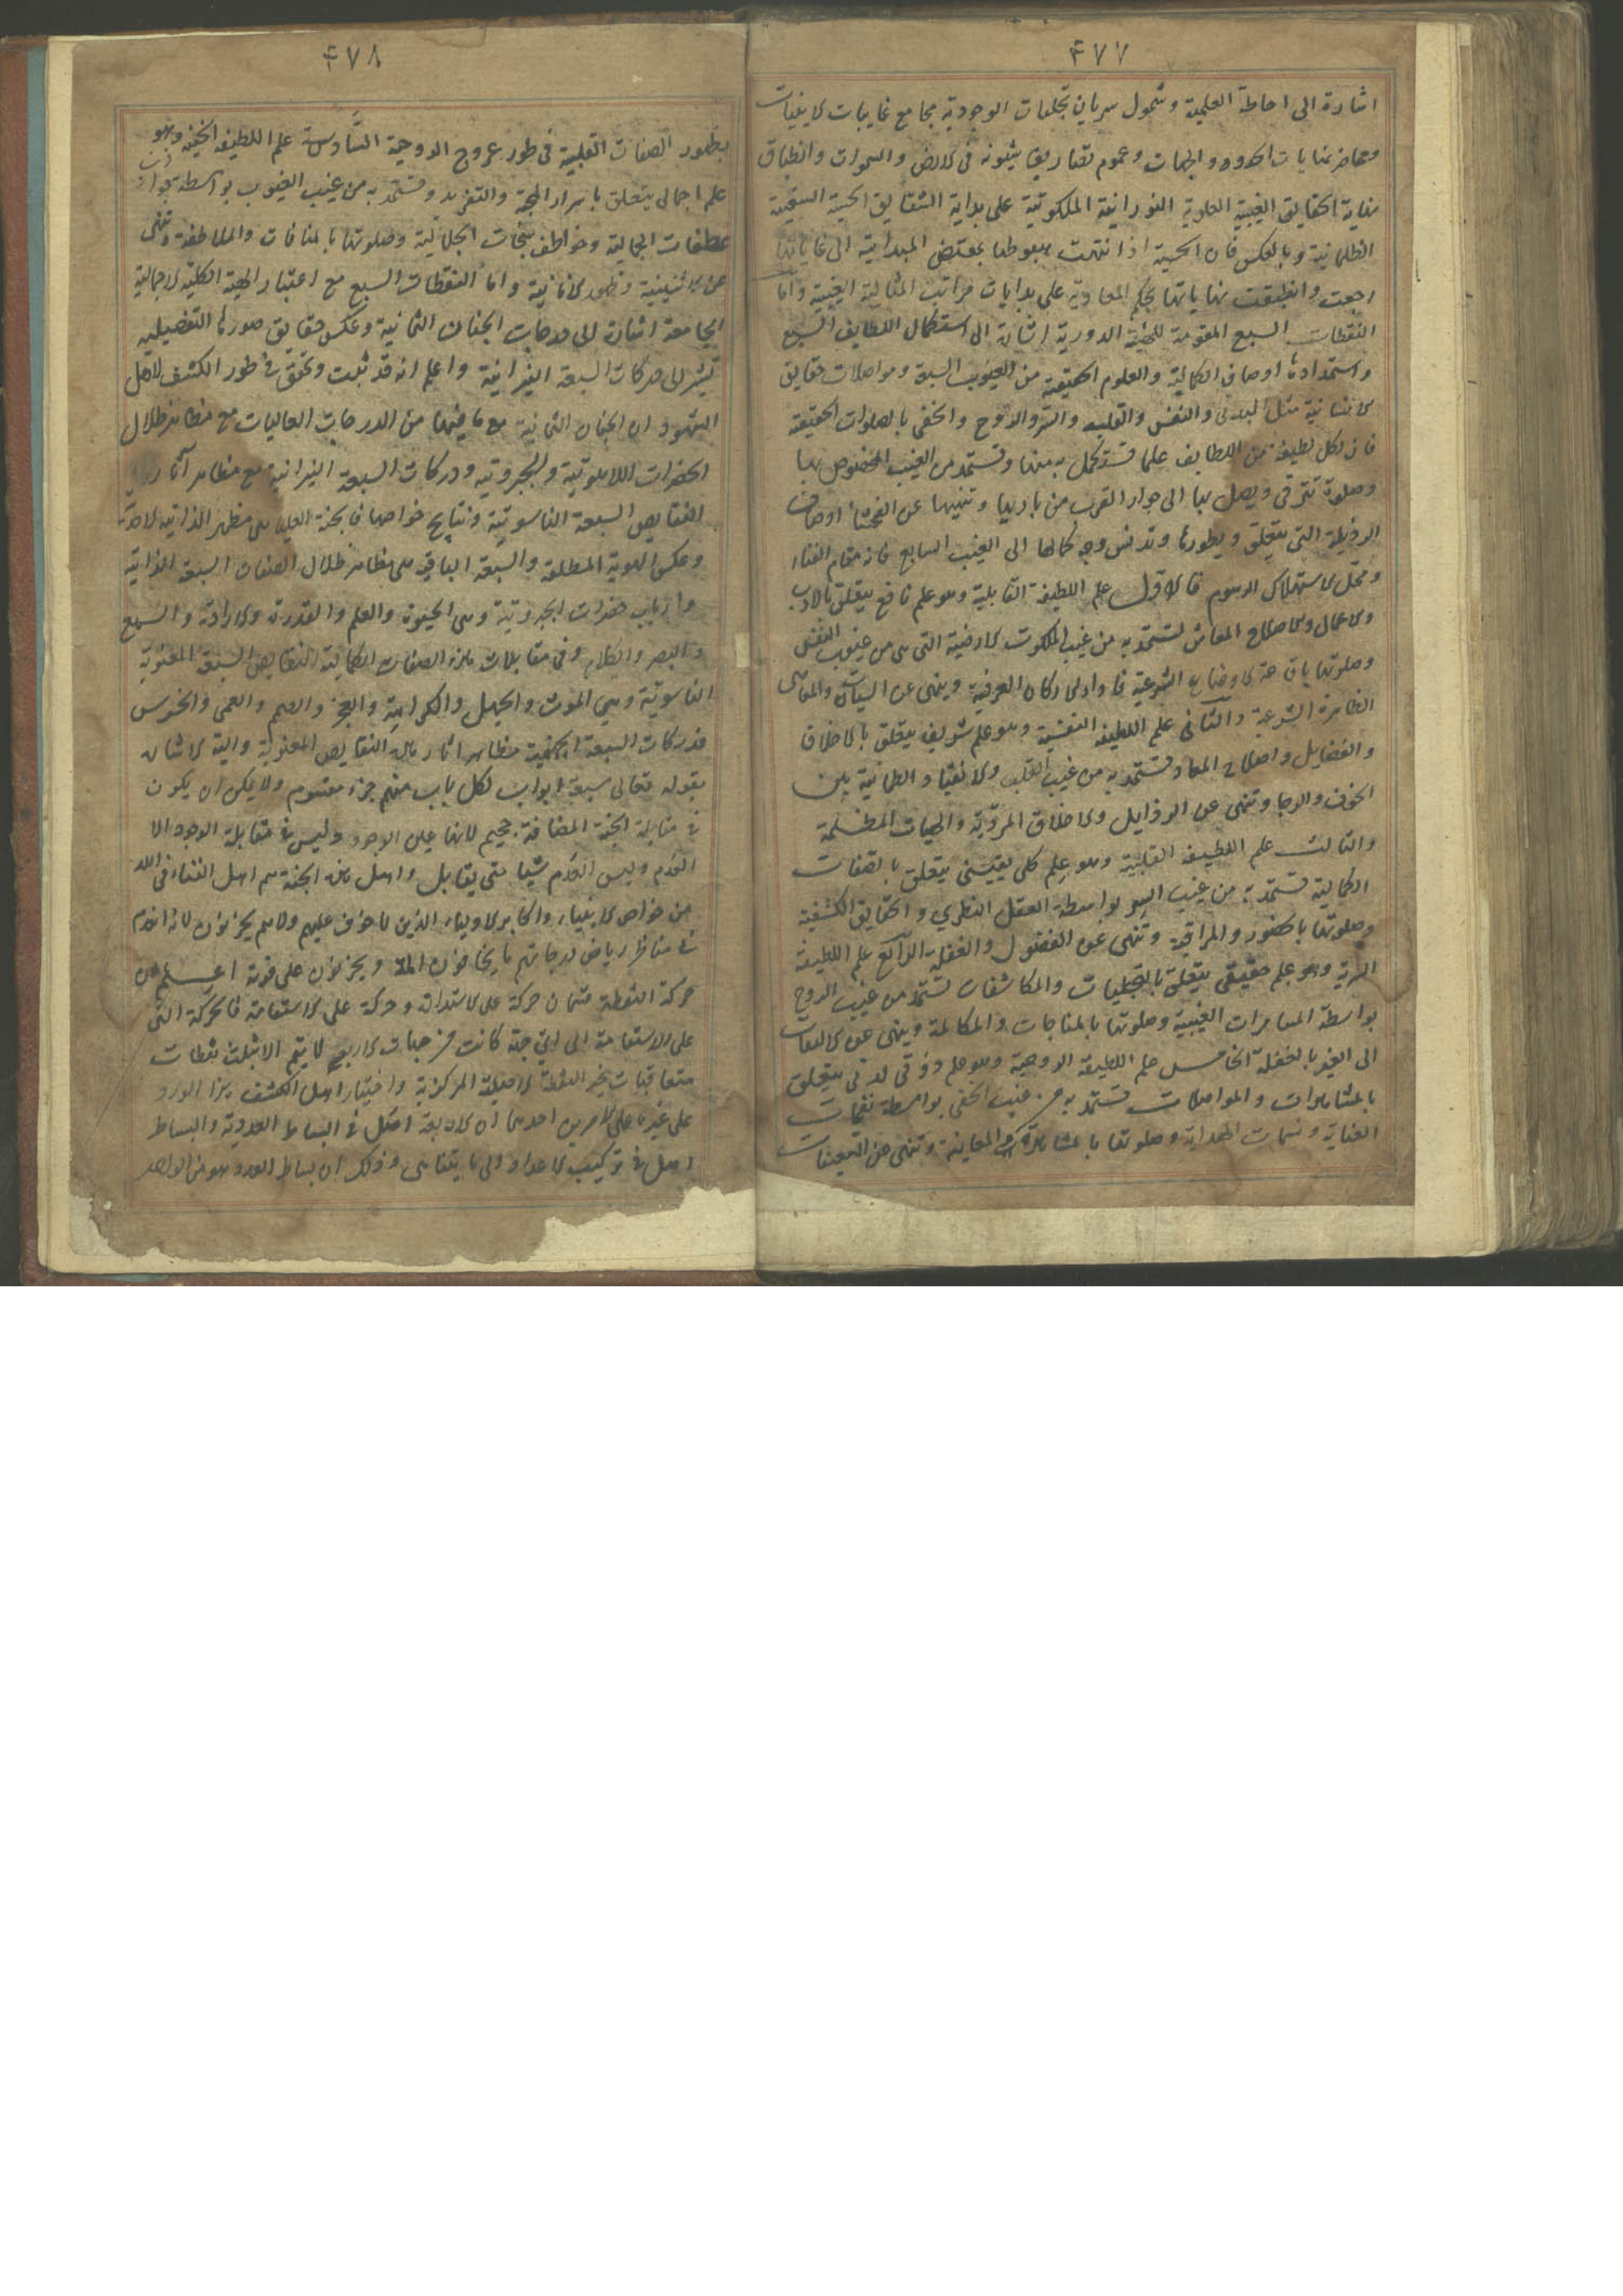 ۴۷۷
اشارة الى احاطة العلمية وشمول سريان تجليات الوجودية مجامع غايبات لا ينيات
ومحاضر نهايات الحدود والجهات وعموم تصاريف شئونه فى الارض والسموات وانطباق
نهاية الحقايق الغيبية العلوية النورانية الملكوتية على بداية الشقايق الحسية السفلية
الظلمانية وبالعكس فان الحسية اذا انتهت هبوطها بمقتضى المبدائية الى غاياتها
رجعت وانطبقت نهاياتها بحكم المعادية على بدايات مراتب المثالية الغيبية واما
النقطات السبع المقومة للهيئة الدورية اشارة الى استكمال اللطايف السبع
واستمدادها اوصاف الكمالية والعلوم الحقيقية من الغيوب السبعة ومواصلات حقايق
الانسانية مثل البدن والنفس والقلب والسر والروح والخفى بالصلوات الحقيقة
فان لكل لطيفة من اللطايف علما تستكمل به منها وتستمد من الغيب المخصوص بها
وصلوة تترقى ويصل بها الى جوار القرب من باريها وتنهيها عن الفحشا اوصاف
الرذيلة التى يتعلق وبطورها وتدنس وجه كمالها الى الغيب السابع فانه مقام الفناء
ومحل الاستهلاك الرسوم فالاول علم اللطيفة القالبية وهو علم نافع يتعلق بالاداب
والاعمال والاصلاح المعاش تستمد به من غيب الملكوت الارضية التى هى من غيوب النفس
وصلوتها باقامة الاوضاع الشرعية واداء اركان العرفية وينهى عن السيئات والمعاصى
الظاهرة الشرعية والثانى علم اللطيفة النفسية وهو علم شريف يتعلق بالاخلاق
والفضايل واصلاح المعاد تستمد به من غيب القلب والانقياد والطمانية بين
الخوف والرجا وتنهى عن الرذايل والاخلاق المردية والهيات المظلمة
والثالث علم اللطيفة القلبية وهو علم كلى يقينى يتعلق بالصفات
الكمالية تستمد به من غيب السر بواسطة العقل النظري والحقايق الكشفية
وصلوتها بالحضور والمراقبة وتنهى عن الفضول والغفلة الرابع علم اللطيفة
السرية وهو علم حقيقى يتعلق بالتجليات والمكاشفات تستمد من غيب الروح
بواسطة المسامرات الغيبية وصلوتها بالمناجات والمكالمة وينهى عن الالتفات
الى الغير بالغفلة الخامس علم اللطيفة الروحية وهو علم ذوقى لدنى يتعلق
بالمشاهدات والمواصلات تستمد به من غيب الخفى بواسطة نفحات
العناية ونسمات الهداية وصلوتها بالمشاهدة والمعاينة وتنهى عن
۴۷۸
بظهور الصفات القلبية فى طور عروج الروحية السادس علم اللطيفة الخفية وهو
علم اجمالى يتعلق باسرار المحبة والتفريد وتستمد به من غيب الغيوب بواسطة
عطفات الجمالية وخواطف سبحات الجلالية وصلوتها بالمنافات والملاطفة وتنهى
عن الاثنينية وظهور الانانية واما النقطات السبع مع اعتبار الهيئة الكلية الاجمالية
الجامعة اشارة الى درجات الجنان الثمانية وعكس حقايق صورها التفصيلية
تشير الى دركات السبعة النيرانية واعلم انه قد ثبت وتحقق فى طور الكشف لاهل
الشهود ان الجنان الثمانية مع ما فيها من الدرجات العاليات مع مظاهر ظلال
الحضرات اللاهوتية والجبروتية ودركات السبعة النيرانية مع مظاهر آثار
النقايص السبعة الناسوتية ونتايج خواصها فالجنة العليا هى مظهر الذاتية الاحدية
وعكس الهوية المطلقة والسبعة الباقية هى مظاهر ظلال الصفات السبعة الذاتية
وارباب حضرات الجبروتية وهى الحيوة والعلم والقدرة والارادة والسمع
والبصر والكلام وفى مقابلات هذه الصفات الكمالية النقايص السبعة المعنوية
الناسوتية وهى الموت والجهل والكراهية والعجز والصمم والعمى والخرس
فدركات السبعة الجهنمية مظاهر اثار هذه النقايص المعنوية واليه الاشارة
بقوله تعالى سبعة ابواب لكل باب منهم جزء مقسوم ولا يمكن ان يكون
فى مقابلة الجنة المضافة جحيم لانها عين الوجود وليس فى مقابلة الوجود الا
العدم وليس العدم شيا حتى يقابل واهل هذه الجنة هم اهل الفناء فى الله
من خواص الانبياء واكابر الاولياء الذين لا خوف عليهم ولا هم يحزنون لانه انعدم
فى مناظر رياض درجاتهم ما يخافون اليه ويحزنون على فوته اعلم ان
حركة النقطة قسمان حركة على الاستدارة وحركة على الاستقامة فالحركة التى
على الاستقامة الى اى جهة كانت من جهات الاربع لا يتم الا بثلث نقطات
متعاقبات بخير النقطة الاصلية المركزية واختيار اهل الكشف هذا الورد
على غيرها على الامرين احدهما ان الاربعة اصل فى البساط العددية والبساط
اصل فى تركيب الاعداد الى ما يتناهى وذلك ان بساط العدد هو من الواحد